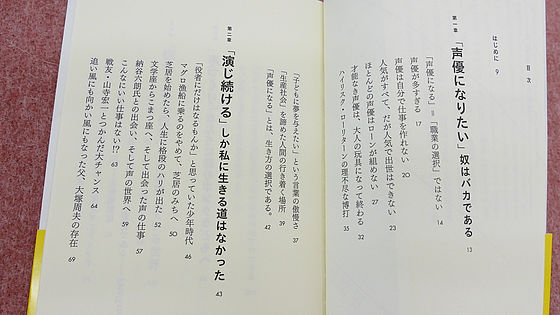 目次
はじめに 9
第一章
「声優になりたい」奴はバカである 13
「声優になる」=「職業の選択」ではない 14
声優が多すぎる 17
声優は自分で仕事を作れない 20
人気がすべて、だが人気で出世はできない 23
ほとんどの声優はローンが組めない 27
才能なき声優は、大人の玩具になって終わる 32
ハイリスク・ローリターンの理不尽な博打 35
「子どもに夢を与えたい」という言葉の傲慢さ 37
「生産社会」を諦めた人間の行き着く場所 39
「声優になる」とは、生き方の選択である。 42
第二章
「演じ続ける」しか私に生きる道はなかった 43
「役者にだけはなるもんか」と思っていた少年時代 46
マグロ漁船に乗るのをやめて、芝居のみちへ 50
芝居を始めたら、人生に格段のハリが出た 52
文学座からこまつ座へ、そして出会った声の仕事 57
納谷六朗氏との出会い、そして声の世界へ 59
こんなにいい仕事はない!? 63
戦友・山寺宏一とつかんだ大チャンス 64
追い風にも向かい風にもなった父、大塚周夫の存在 69